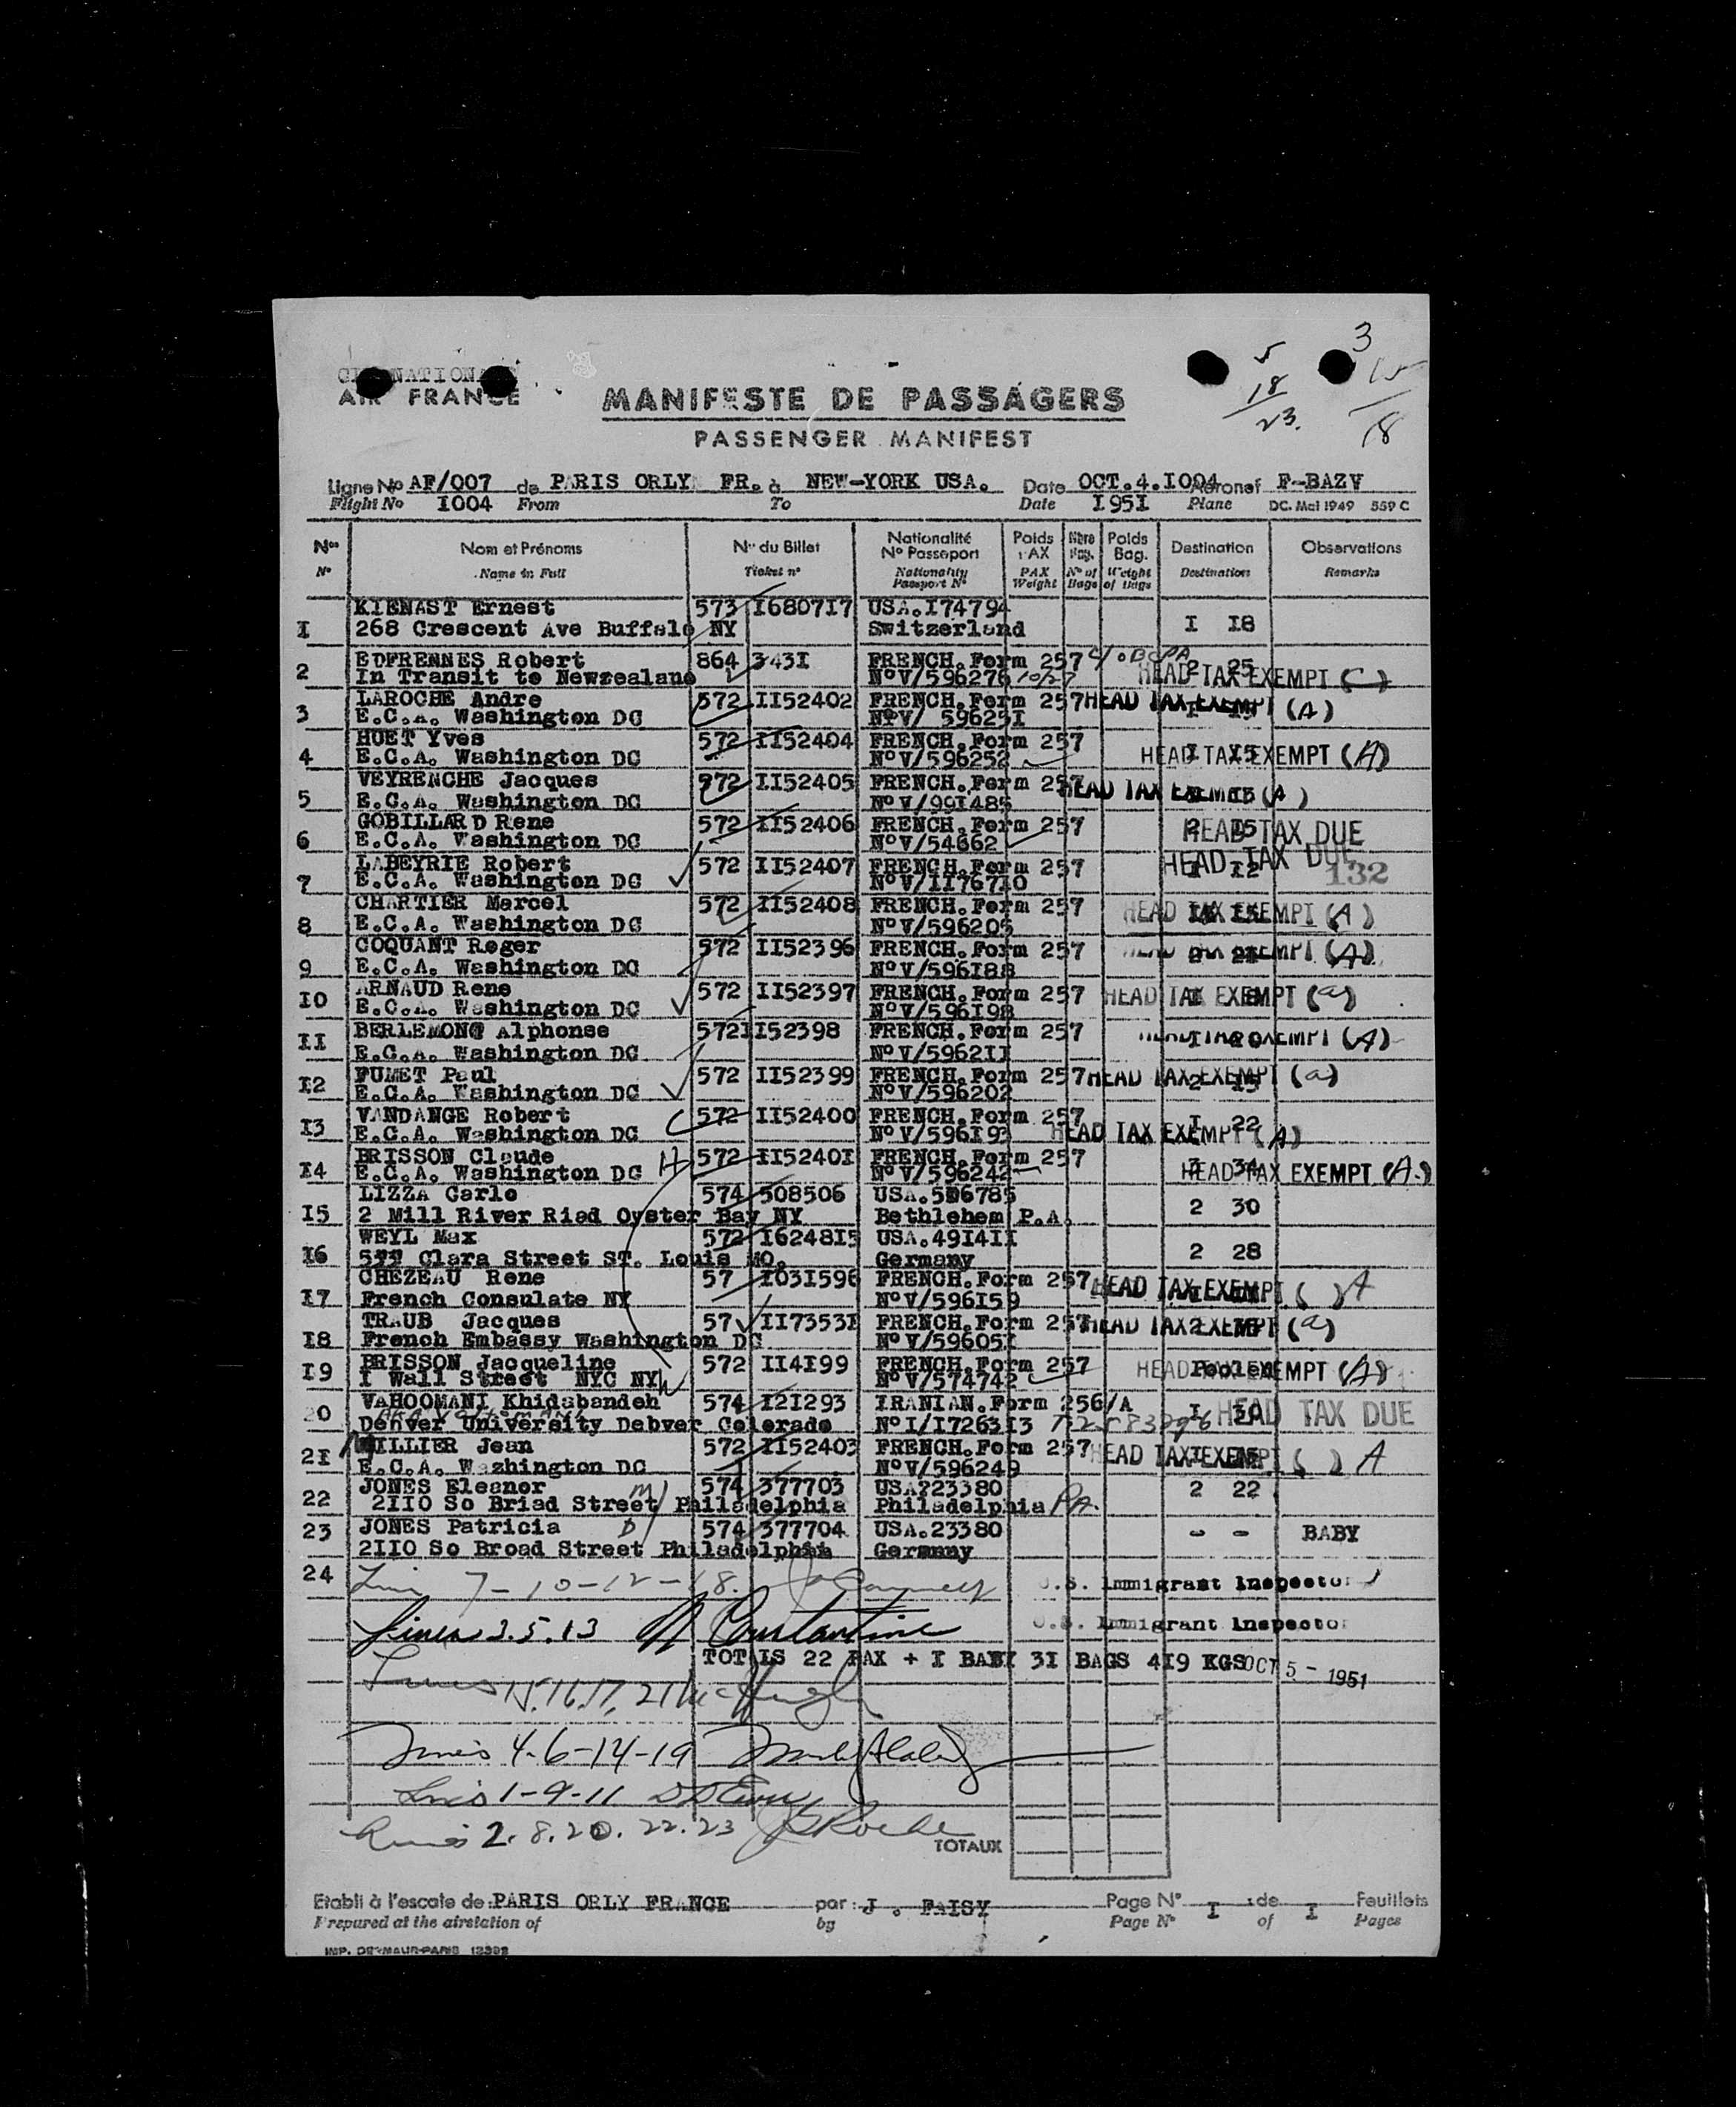 AIR FRANCE
MANIFESTE DE PASSAGERS
PASSENGER MANIFEST
5
18
23.
3
15
18
Ligne No AF/007 de PARIS ORLY FR. à NEW-YORK USA. Date OCT.4.I004 Aéronef F-BAZV
Flight No I004 From To Date I95I Plane DC. Mai 1949 559 C
Nos Nom et Prénoms No du Billet Nationalité No Passeport Poids PAX Nbre Bag. Poids Bag. Destination Observations
No Name in Full Ticket no Nationality Passport No PAX Weight No of Bags Weight of Bags Destination Remarks
KIENAST Ernest 573 I6807I7 USA.I74794
I 268 Crescent Ave Buffalo NY Switzerland I I8
EDFRENNES Robert 864 343I FRENCH.Form 257 c/o BCPA 2 25
2 In Transit to Newzealand NoV/596276 10/27 HEAD TAX EXEMPT (C)
LAROCHE Andre 572 II52402 FRENCH.Form 257 HEAD TAX EXEMPT (A)
3 E.C.A. Washington DC NoV/ 59625I
HUET Yves 572 II52404 FRENCH.Form 257
4 E.C.A. Washington DC NoV/596252 I I5 HEAD TAX EXEMPT (A)
VEYRENCHE Jacques 572 II52405 FRENCH.Form 257 HEAD TAX EXEMPT (A)
5 E.C.A. Washington DC NoV/99I485
GOBILLARD Rene 572 II52406 FRENCH.Form 257 2 I5 HEAD TAX DUE
6 E.C.A. Washington DC NoV/54662
LABEYRIE Robert 572 II52407 FRENCH.Form 257 I I2 HEAD TAX DUE
7 E.C.A. Washington DC NoV/II767I0 132
CHARTIER Marcel 572 II52408 FRENCH.Form 257 HEAD TAX EXEMPT (A)
8 E.C.A. Washington DC NoV/596205
COQUANT Roger 572 II52396 FRENCH.Form 257 HEAD TAX EXEMPT (A)
9 E.C.A. Washington DC NoV/596I88
ARNAUD Rene 572 II52397 FRENCH.Form 257 HEAD TAX EXEMPT (a)
I0 E.C.A. Washington DC NoV/596I98
BERLEMONG Alphonse 572 II52398 FRENCH.Form 257 HEAD TAX EXEMPT (A)
II E.C.A. Washington DC NoV/5962II
FUMET Paul 572 II52399 FRENCH.Form 257 HEAD TAX EXEMPT (a)
I2 E.C.A. Washington DC NoV/596202 2 I5
VANDANGE Robert 572 II52400 FRENCH.Form 257 I 22
I3 E.C.A. Washington DC NoV/596I93 HEAD TAX EXEMPT (A)
BRISSON Claude 572 II5240I FRENCH.Form 257
I4 E.C.A. Washington DC NoV/596242 3 34 HEAD TAX EXEMPT (A)
LIZZA Carlo 574 508506 USA.506785
I5 2 Mill River Riad Oyster Bay NY Bethlehem P.A. 2 30
WEYL Max 572 I6248I5 USA.49I4II
I6 577 Clara Street ST. Louis MO. Germany 2 28
CHEZEAU Rene 57 I03I596 FRENCH.Form 257 HEAD TAX EXEMPT ( ) A
I7 French Consulate NY NoV/596I59
TRAUB Jacques 57 II7353I FRENCH.Form 257 HEAD TAX EXEMPT (a)
I8 French Embassy Washington DC NoV/59605I
BRISSON Jacqueline 572 II4I99 FRENCH.Form 257 Pooled HEAD TAX EXEMPT (A)
I9 I Wall Street NYC NY NoV/574742
VAHOOMANI Khidabandeh 574 I2I293 IRANIAN.Form 256/A
20 Denver University Debver Colerado NoI/I7263I3 I 20 HEAD TAX DUE
MILLIER Jean 572 II52403 FRENCH.Form 257 HEAD TAX EXEMPT ( ) A
2I E.C.A. Wazhington DC NoV/596249
JONES Eleanor 574 377703 USA?23380
22 2II0 So Briad Street Philadelphia Philadelphia PA. 2 22
23 JONES Patricia 574 377704 USA.23380 - - BABY
2II0 So Broad Street Philadelphia Germany
24 7-10-12-18. U.S. Immigrant Inspector
Lines 3.5.13 Constantine U.S. Immigrant Inspector
TOTALS 22 PAX + I BABY 3I BAGS 4I9 KGS OCT 5 - 1951
Lines 15.16.17.21
Lines 4-6-14-19
Lines 1-9-11
Lines 2.8.20.22.23 Roche
TOTAUX
Etabli à l'escale de PARIS ORLY FRANCE par : J . FAISY Page No I de I Feuillets
Prepared at the airstation of by Page No of Pages